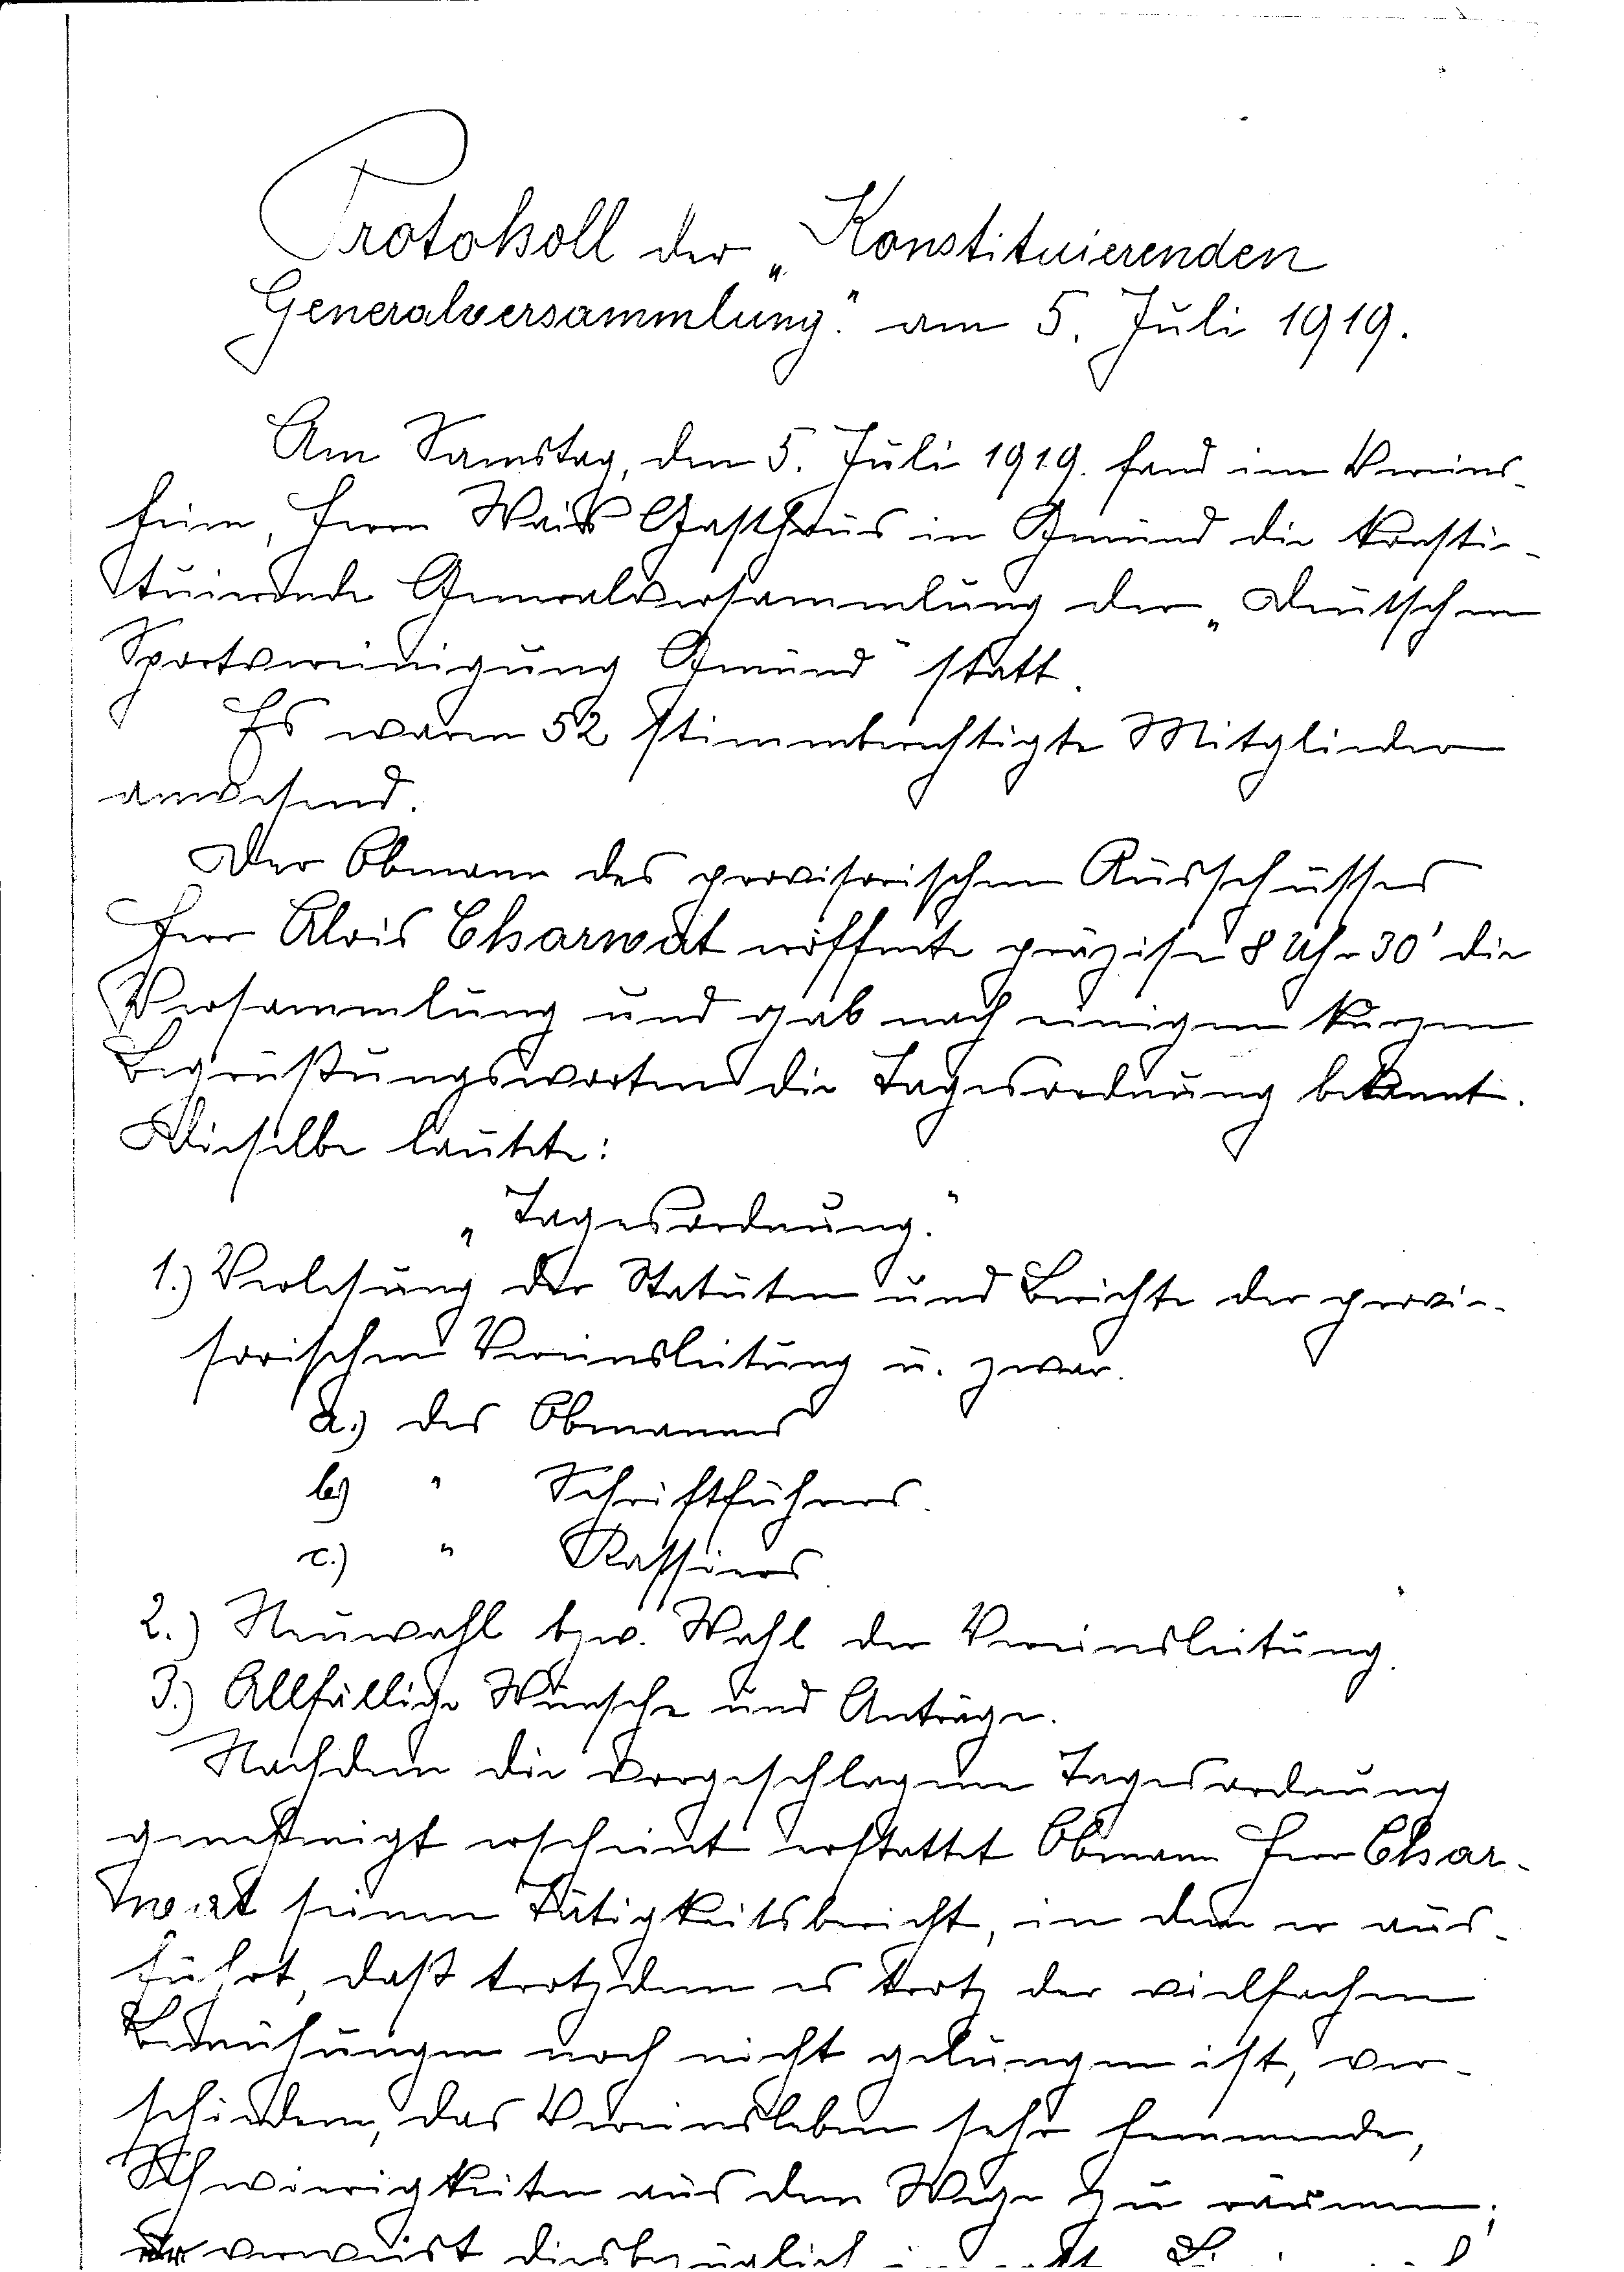 Protokoll der „Konstituierenden
Generalversammlung." am 5. Juli 1919.
Am Samstag, den 5. Juli 1919. fand im Vereins-
heim, Herrn Weiss Gasthaus in Gmünd die konsti-
tuierende Generalversammlung der „Deutschen
Sportvereinigung Gmünd" statt.
Es waren 52 stimmberechtigte Mitglieder
anwesend.
Der Obmann des provisorischen Ausschusses
Herr Alois Charwat eröffnete präzise 8 Uhr 30' die
Versammlung und gab nach einigen kurzen
Begrüßungsworten die Tagesordnung bekannt.
Dieselbe lautete:
„Tagesordnung."
1.) Verlesung der Statuten und Berichte der provi-
sorischen Vereinsleitung u. zwar.
a.) des Obmannes
b.) " Schriftführers.
c.) " Kassiers.
2.) Neuwahl bzw. Wahl der Vereinsleitung.
3.) Allfällige Wünsche und Anträge.
Nachdem die vorgeschlagene Tagesordnung
genehmigt erscheint erstattet Obmann Herr Char-
wat seinen Tätigkeitsbericht, in dem er aus-
führt, daß trotzdem es trotz der vielfachen
Bemühungen noch nicht gelungen ist, ver-
schiedene, das Vereinsleben sehr hemmende,
Schwierigkeiten aus dem Wege zu räumen;
er verweist diesbezüglich